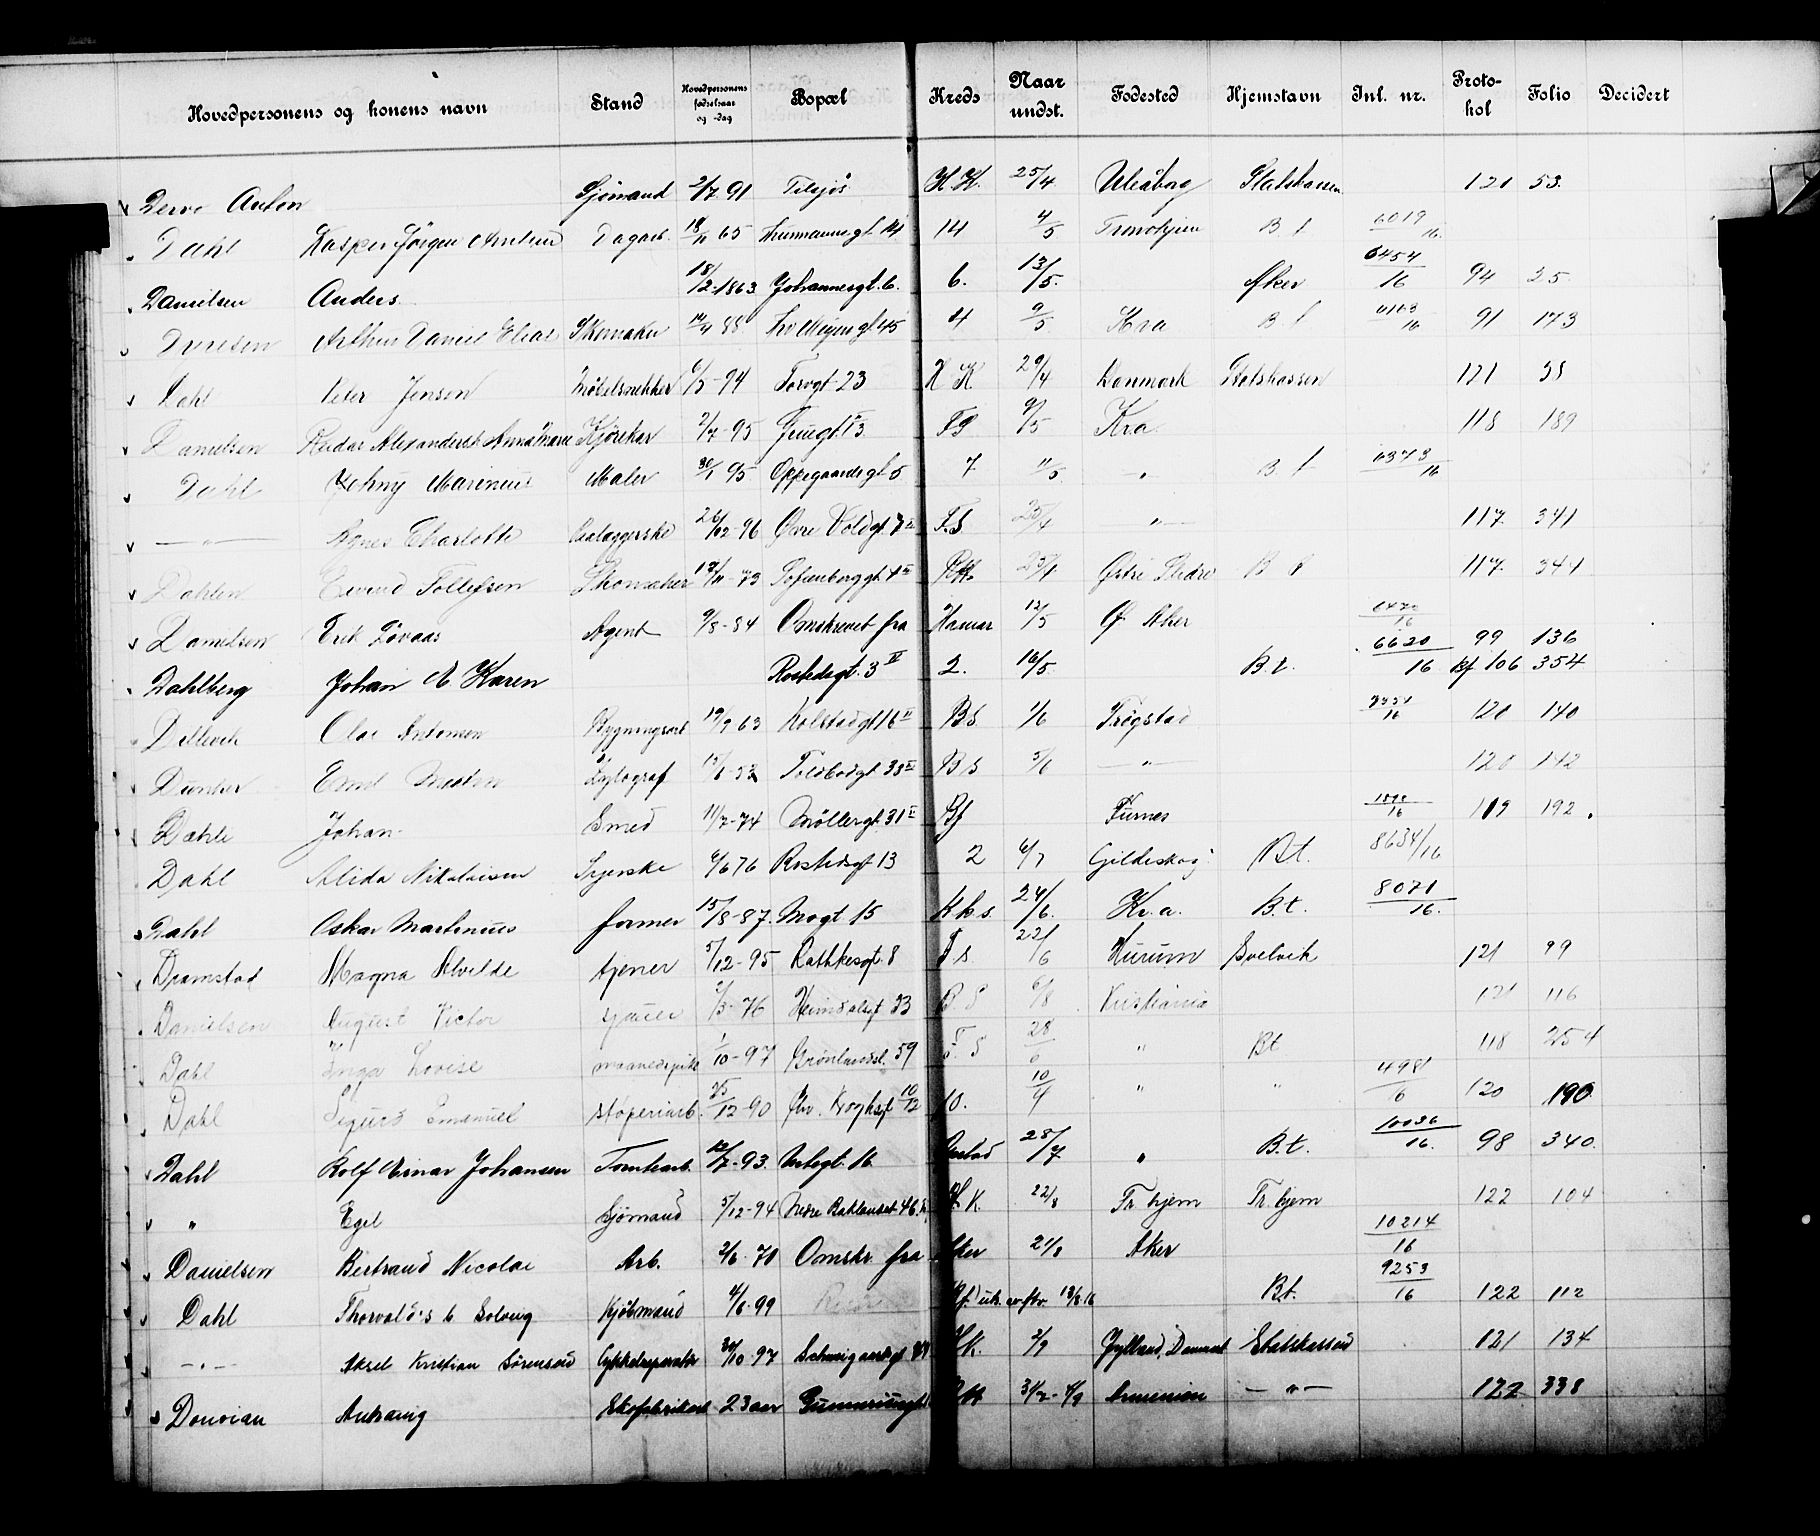 Hovedpersonens og konens navn Stand Hovedpersonens fødselsaar og -dag Bopæl Kreds Naar undst. Fødested Hjemstavn Inl. nr. Protokol Folio Decidert
Derve Anton Sjømand 2/7 91 H.K. 25/4 Uleåborg Statskassen 121 53.
Dahl Kasper Jørgen Dagarb. 18/11 65 14 4/5 Trondhjem B t 6019/16.
Danielsen Anders 18/2-1863 Johannesgt. 6. 6. 13/5. Aker 6454/16 94 25.
Arthur Daniel Elias Skomaker 45 4 9/5 Kra B t 91 173
Dahl Peter Jensen Møbelsnekker 6/5-94 Torvgt. 23 H K 29/4 Danmark Statskassen 121 38
Danielsen Reidar Alexander Anna Marie Kjørekar 2/7-95 F S 9/5 Kra 118 189
Dahl Johny Marinius Maler 30/1 95 Oppegaardsgt 5 7 11/5 " B t 6373/16
— " — Agnes Charlotte 26/12-96 Øvre Voldgt. 7 F.S 25/4 — " — 117. 341
Dahlen Eivind Tollefsen Skomaker Sofienberggt. 4 25/4 Østre Slidre B t 117. 344
Danielsen Erik Løvaas Agent 9/8-84 Omskrevet fra Hamar 12/5 Ø. Aker 6470/16
Dahlberg Johan & Karen Rostedsgt. 3 IV 2. 16/5. B t. 6620/16 99 136 kf 106 354
Olai Antonsen Bygningsarb 19/9 63 Kolstadgt 16 II B S 1/6 Trøgstad 120 140
Dunker Emil Xylograf Toldbodgt. 33 B S 5/6 — " — 120 142
Dæhli Johan Smed 11/7-74 Møllergt. 31 II Bf Furnes 119 192.
Dahl Alida Nikolaisen Syerske 6/6 76 Rostedsgt 13 2 6/7 Gildeskog Bt. 8634/16
Dahl Oskar Martinius former 15/8-87. Mogt 15 K k. s. 24/6. Kr.a. B.t. 8071/16.
Dramstad Magna Alvilde tjener 5/12-95 Rathkesgt. 8 F S 22/6 Hurum Svelvik 121 99
Danielsen August Victor 2/3-76 Heimdalsgt 33 B. S 6/8 Kristiania 121 116
Dahl Inga Lovise 1/10-97 Grønlandsl. 59 F. S 28/6 " Bt 118 254
Dahl Sigurd Emanuel støperiarb. 25/12-90 Chr. Kroghsgt 10/12 10. 10/4 " " 4981/6 120 190
Dahl Rolf Einar Johansen Tomtearb. 12/7-93. Urtegt. 16 28/7 " B.t. 10036/16. 98 340.
" Egil Sjømand 5/12-94 46. H. K. 22/8 Tr.hjem Tr.hjem 122 104
Danielsen Bertrand Nicolai Arb. 2/6. 70 Omskr. fra Aker 21/8 Aker 10214/16
Dahl Thorvald's b Solveig Kjøbmand 4/6-99 13/8-16 Bt. 9253/16 122 112
— " — Aksel Kristian Sørensen Cykkelreparatør 30/10-97 Schweigaardsgt H K. 2/9 Jylland, Danmark Statskassen 121 134
Donoian Antranig Skofabrikarb 23 aar 31/7-4/9 Armenien — " — 122 338